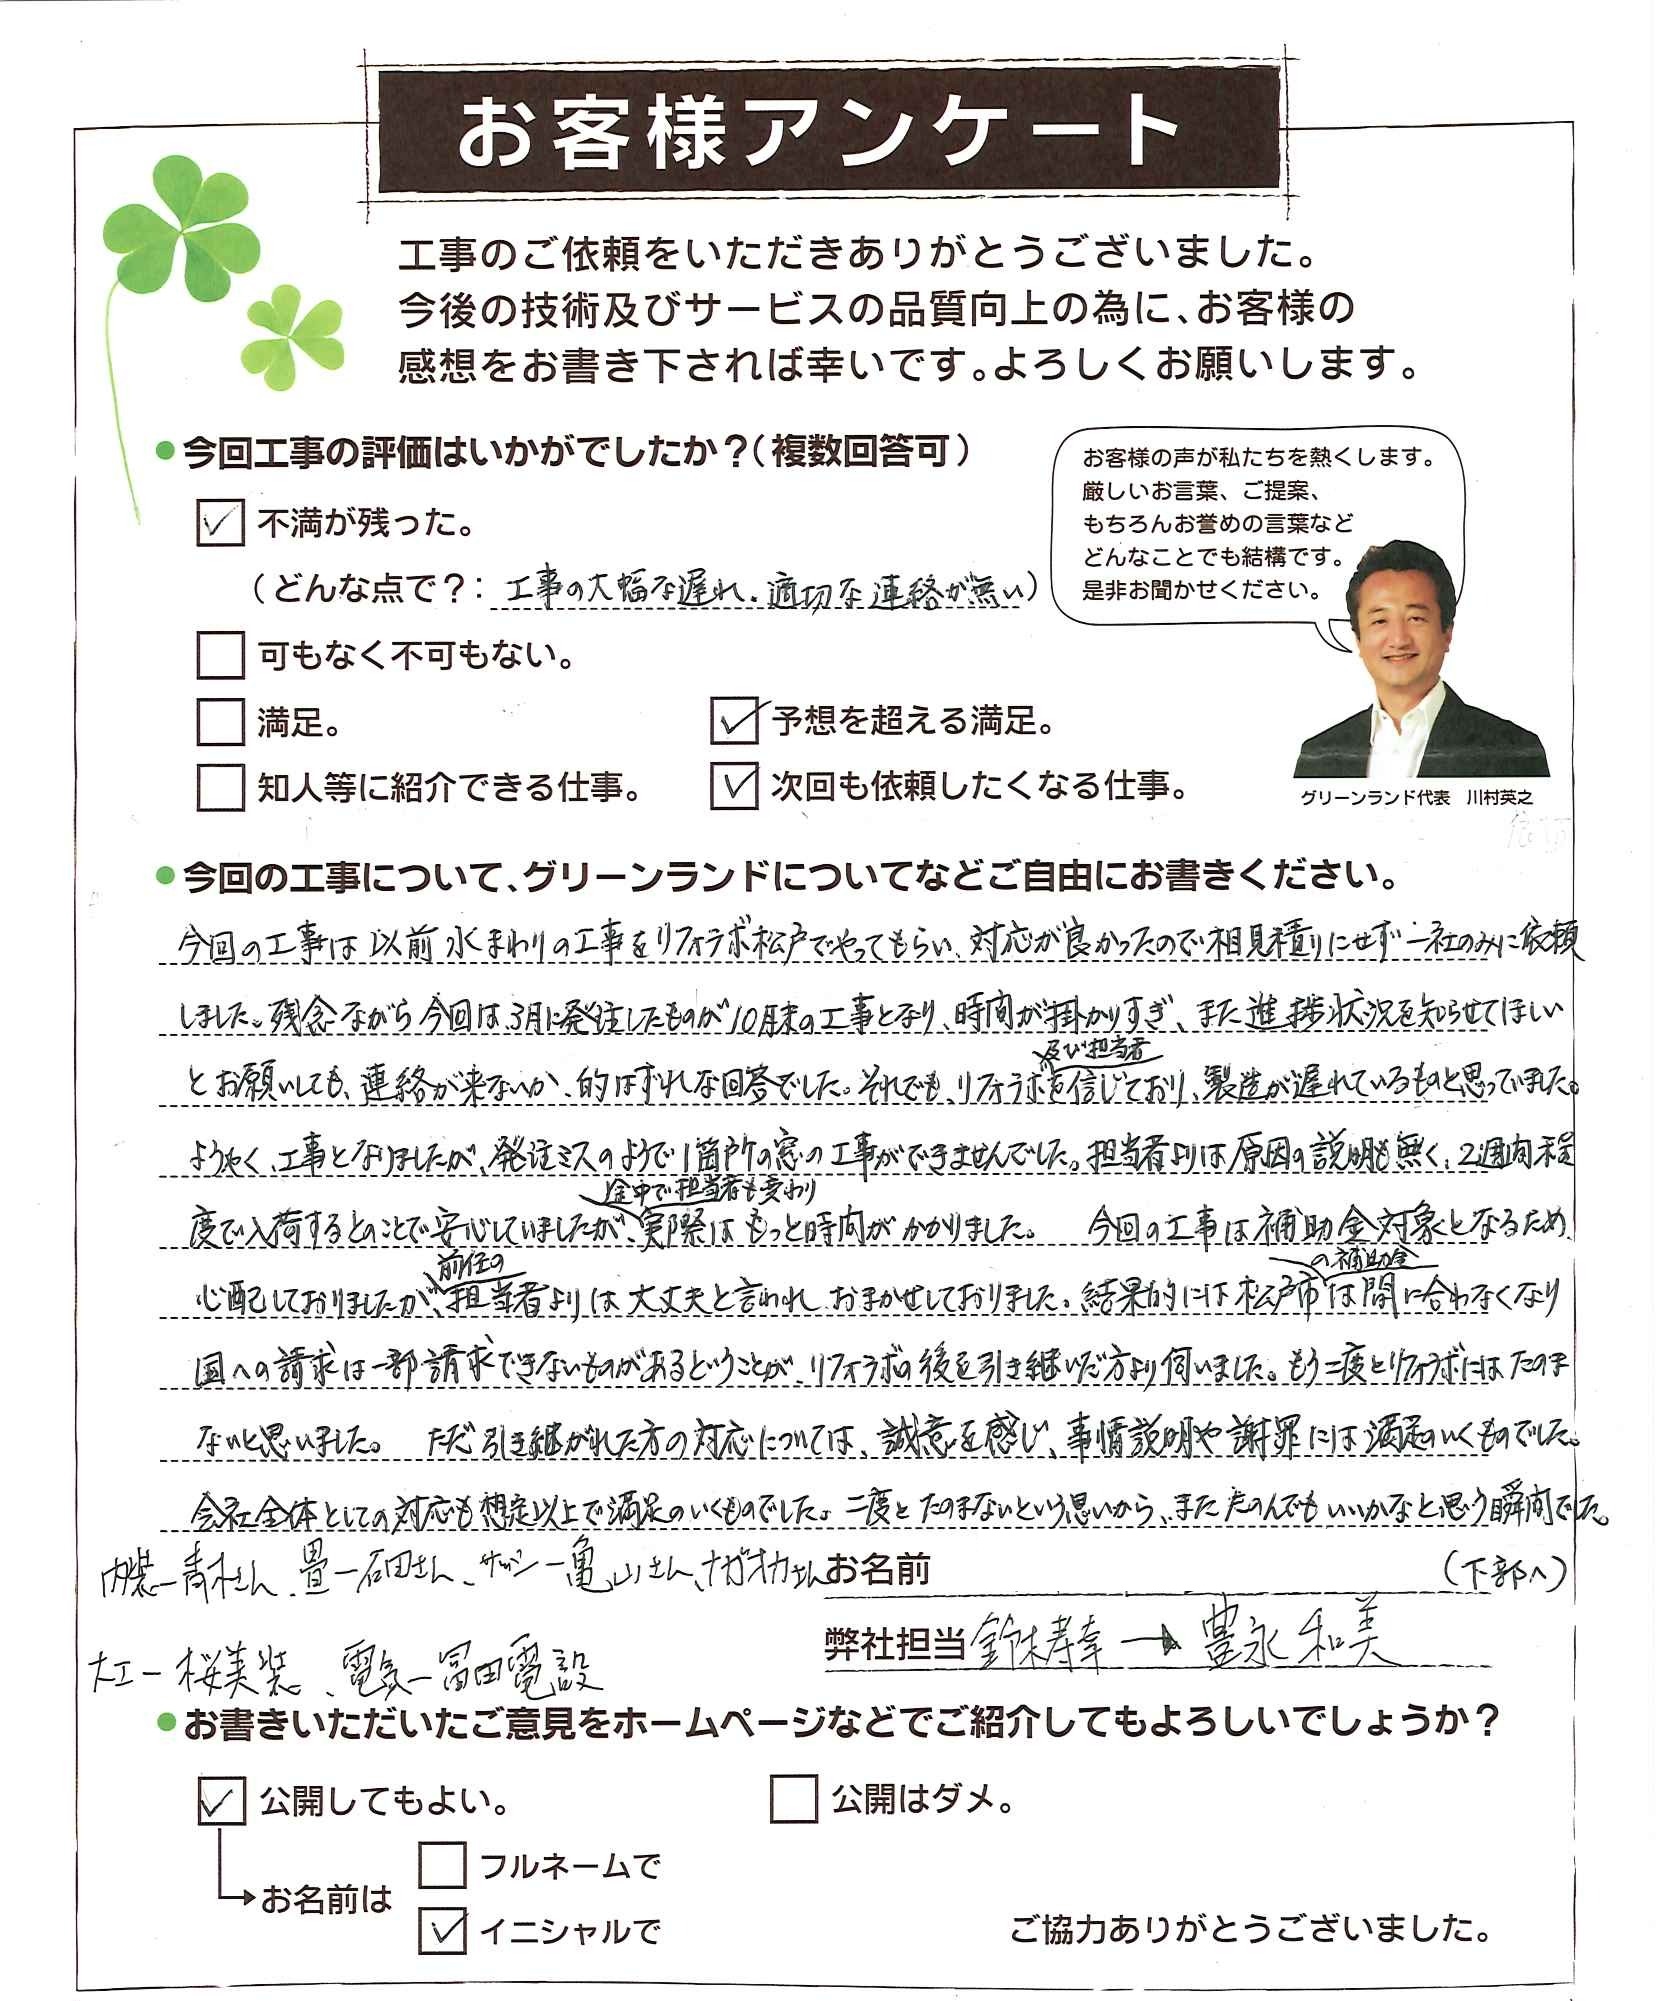 お客様アンケート
工事のご依頼をいただきありがとうございました。
今後の技術及びサービスの品質向上の為に、お客様の
感想をお書き下されば幸いです。よろしくお願いします。
今回工事の評価はいかがでしたか？（複数回答可）
不満が残った。
（どんな点で？：工事の大幅な遅れ、適切な連絡が無い）
可もなく不可もない。
満足。
予想を超える満足。
知人等に紹介できる仕事。
次回も依頼したくなる仕事。
お客様の声が私たちを熱くします。
厳しいお言葉、ご提案、
もちろんお誉めの言葉など
どんなことでも結構です。
是非お聞かせください。
グリーンランド代表 川村英之
今回の工事について、グリーンランドについてなどご自由にお書きください。
今回の工事は以前水まわりの工事をリフォラボ松戸でやってもらい、対応が良かったので相見積りにせず一社のみに依頼
しました。残念ながら今回は3月に発注したものが10月末の工事となり、時間が掛かりすぎ、また進捗状況を知らせてほしい
及び担当者
とお願いしても、連絡が来ないか、的はずれな回答でした。それでも、リフォラボを信じており、製造が遅れているものと思っていました。
ようやく、工事となりましたが、発注ミスのようで1箇所の窓の工事ができませんでした。担当者よりは原因の説明も無く、2週間程
途中で担当者も変わり
度で入荷するとのことで安心していましたが、実際はもっと時間がかかりました。 今回の工事は補助金対象となるため、
前任の
の補助金
心配しておりましたが、担当者よりは大丈夫と言われ、おまかせしておりました。結果的には松戸市は間に合わなくなり
国への請求は一部請求できないものがあるということが、リフォラボの後を引き継いだ方より伺いました。もう二度とリフォラボにはたのま
ないと思いました。 ただ引き継がれた方の対応については、誠意を感じ、事情説明や謝罪には満足のいくものでした。
会社全体としての対応も想定以上で満足のいくものでした。二度とたのまないという思いから、またたのんでもいいかなと思う瞬間でした。
内装ー青木さん、畳ー石田さん、サッシー亀山さん、ナガオカさん
お名前
（下部へ）
弊社担当 鈴木寿幸→豊永和美
大工ー桜美装、電気ー冨田電設
お書きいただいたご意見をホームページなどでご紹介してもよろしいでしょうか？
公開してもよい。
公開はダメ。
お名前は
フルネームで
イニシャルで
ご協力ありがとうございました。